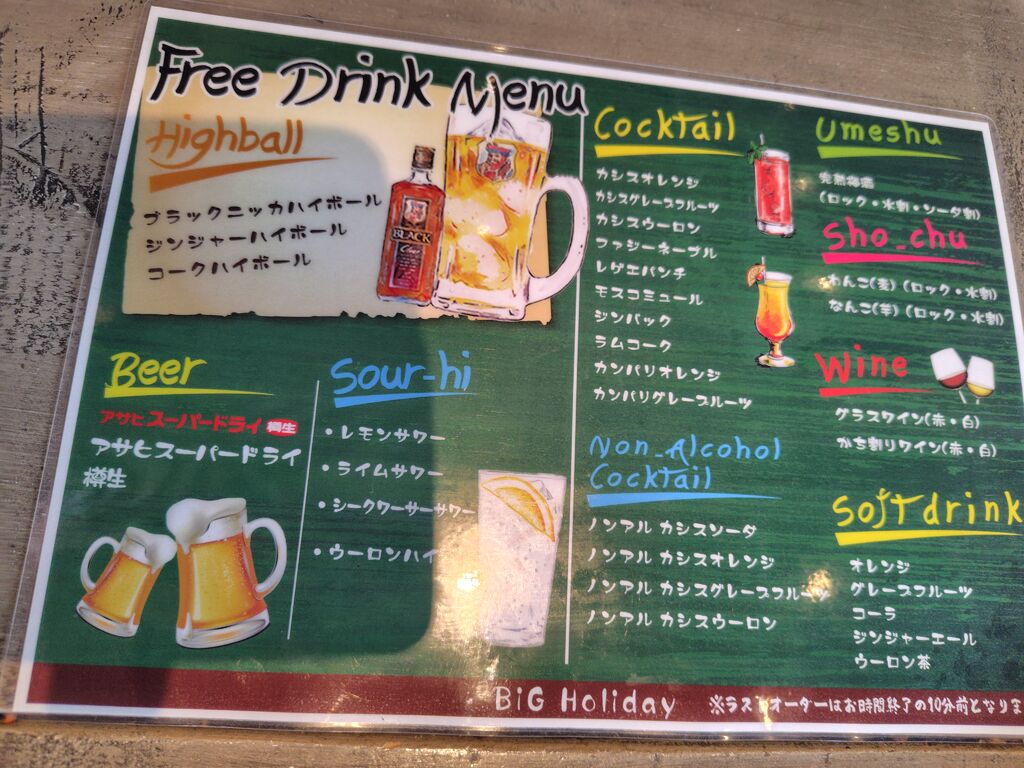 Free Drink Menu
Highball
ブラックニッカハイボール
ジンジャーハイボール
コークハイボール
BLACK
Beer
アサヒスーパードライ 樽生
アサヒスーパードライ
樽生
Sour-hi
・レモンサワー
・ライムサワー
・シークワーサーサワー
・ウーロンハイ
Cocktail
カシスオレンジ
カシスグレープフルーツ
カシスウーロン
ファジーネーブル
レゲエパンチ
モスコミュール
ジンバック
ラムコーク
カンパリオレンジ
カンパリグレープフルーツ
Non_Alcohol
Cocktail
ノンアル カシスソーダ
ノンアル カシスオレンジ
ノンアル カシスグレープフルーツ
ノンアル カシスウーロン
Umeshu
完熟梅酒
(ロック・水割・ソーダ割)
Sho_chu
わんこ(麦) (ロック・水割)
なんこ(芋) (ロック・水割)
Wine
グラスワイン(赤・白)
かち割りワイン(赤・白)
Softdrink
オレンジ
グレープフルーツ
コーラ
ジンジャーエール
ウーロン茶
BiG Holiday
※ラストオーダーはお時間終了の10分前となりま